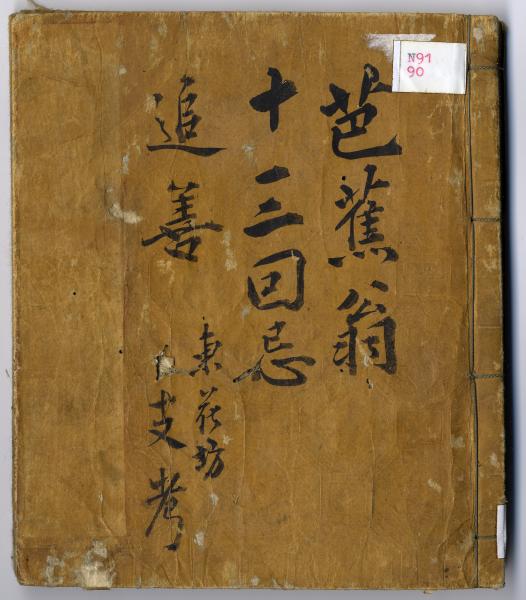 芭蕉翁
十三回忌
追善
東花坊
支考
N91
90